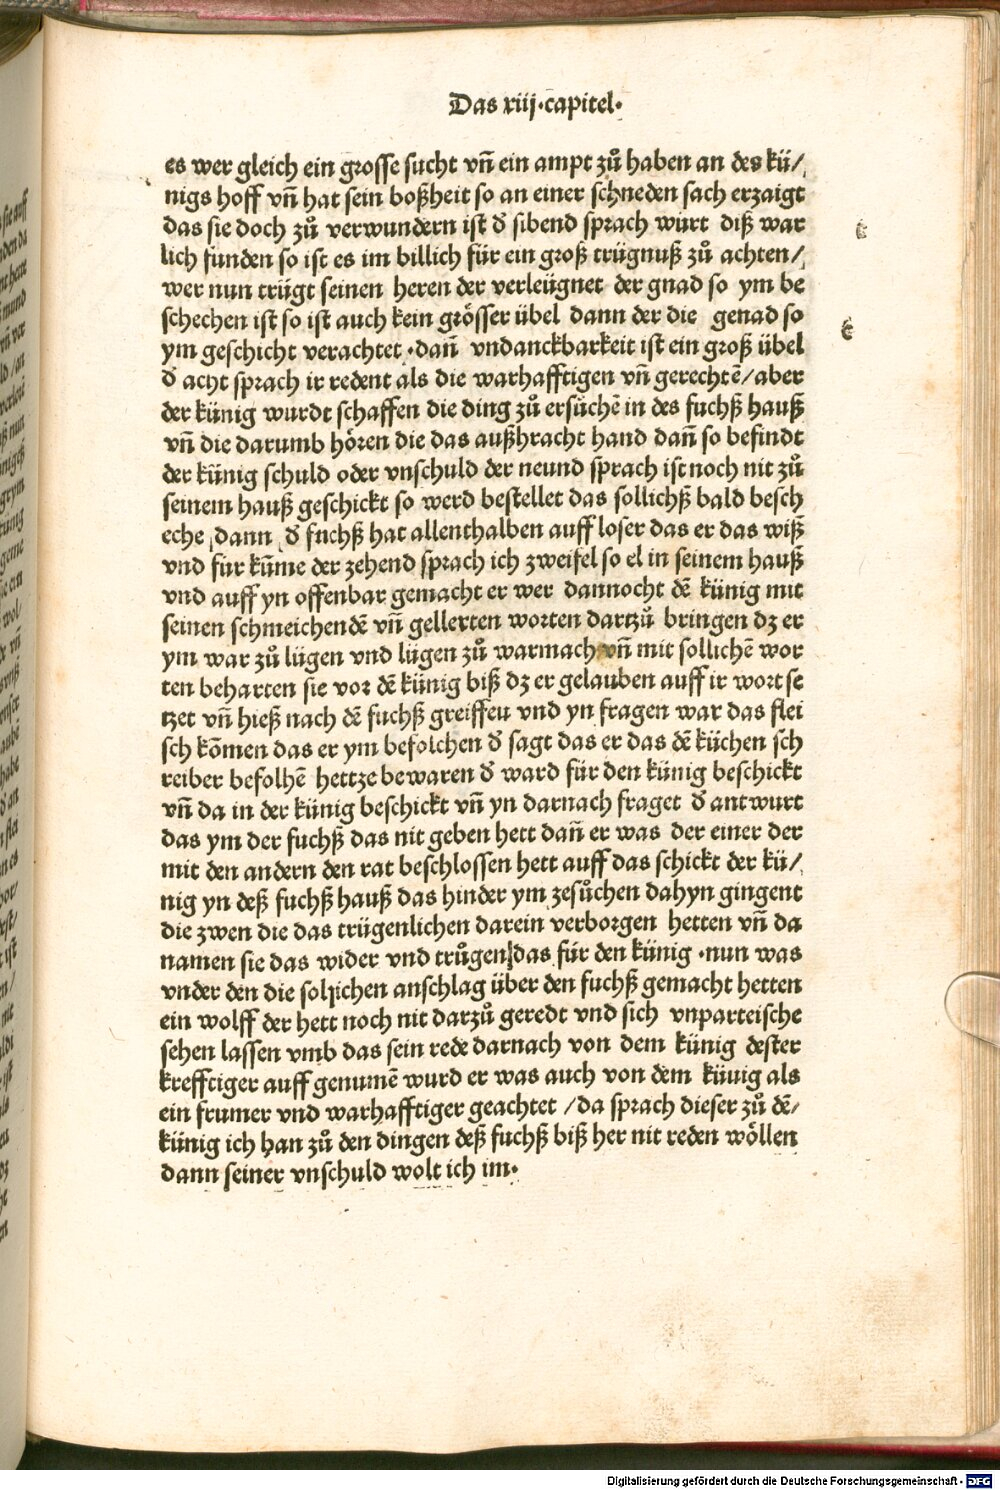 Das xiij·capitel·
es wer gleich ein grosse sucht vñ ein ampt zů haben an des kü/
nigs hoff vñ hat sein boßheit so an einer schneden sach erzaigt
das sie doch zů verwundern ist đ sibend sprach würt diß war
lich funden so ist es im billich für ein groß trügnuß zů achten/
wer nun trügt seinen heren der verleügnet der gnad so ym be
schechen ist so ist auch kein grösser übel dann der die genad so
ym geschicht verachtet·dañ vndanckbarkeit ist ein groß übel
đ acht sprach ir redent als die warhafftigen vñ gerechtē/aber
der künig wurdt schaffen die ding zů ersůchē in des fuchß hauß
vñ die darumb hören die das außhracht hand dañ so befindt
der künig schuld oder vnschuld der neund sprach ist noch nit zů
seinem hauß geschickt so werd bestellet das sollichß bald besch
eche dann đ fuchß hat allenthalben auff loser das er das wiß
vnd für kūme der zehend sprach ich zweifel so el in seinem hauß
vnd auff yn offenbar gemacht er wer dannocht dē künig mit
seinen schmeichendē vñ gellerten worten dartzů bringen dz er
ym war zů lügen vnd lügen zů warmach vñ mit sollichē wor
ten beharten sie vor dē künig biß dz er gelauben auff ir wort se
tzet vñ hieß nach dē fuchß greiffeu vnd yn fragen war das flei
sch kōmen das er ym befolchen đ sagt das er das dē küchen sch
reiber befolhē hettze bewaren đ ward für den künig beschickt
vñ da in der künig beschickt vñ yn darnach fraget đ antwurt
das ym der fuchß das nit geben hett dañ er was der einer der
mit den andern den rat beschlossen hett auff das schickt der kü/
nig yn deß fuchß hauß das hinder ym zesůchen dahyn gingent
die zwen die das trügenlichen darein verborgen hetten vñ da
namen sie das wider vnd trůgen das für den künig·nun was
vnder den die sollichen anschlag über den fuchß gemacht hetten
ein wolff der hett noch nit darzů geredt vnd sich vnparteische
sehen lassen vmb das sein rede darnach von dem künig dester
krefftiger auff genumē wurd er was auch von dem küuig als
ein frumer vnd warhafftiger geachtet /da sprach dieser zů dē/
künig ich han zů den dingen deß fuchß biß her nit reden wöllen
dann seiner vnschuld wolt ich im·
Digitalisierung gefördert durch die Deutsche Forschungsgemeinschaft - DFG